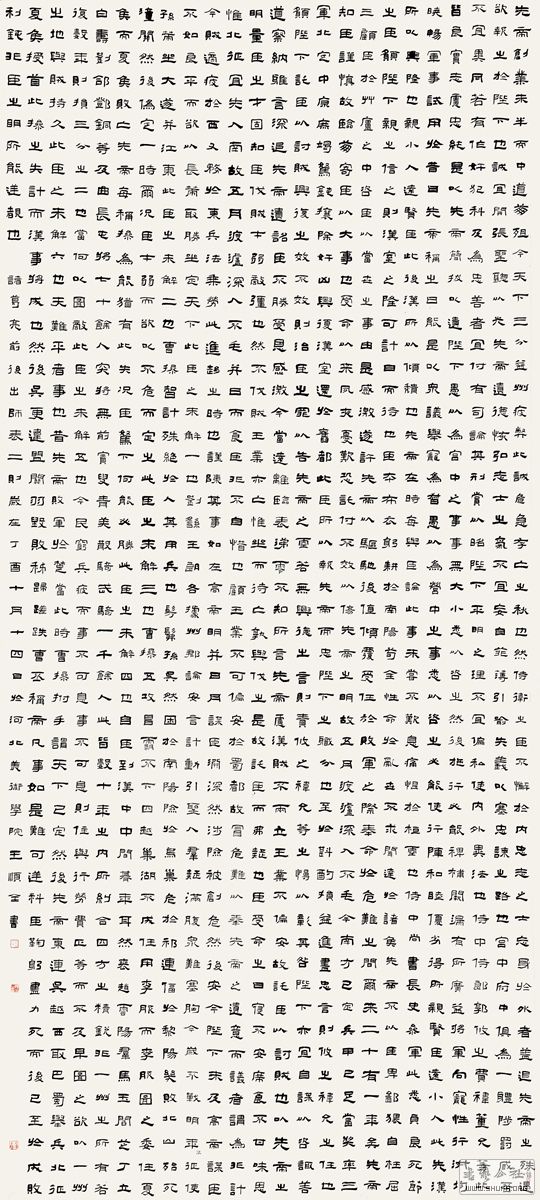 先帝創業未半而中道崩殂今天下三分益州疲弊此誠危急存亡之秋也然侍衛之臣不懈於內忠志之士忘身於外者蓋追先帝之殊遇
欲報之於陛下也誠宜開張聖聽以光先帝遺德恢弘志士之氣不宜妄自菲薄引喻失義以塞忠諫之路也宮中府中俱為一體陟罰臧否
不宜異同若有作奸犯科及為忠善者宜付有司論其刑賞以昭陛下平明之理不宜偏私使內外異法也侍中侍郎郭攸之費禕董允等此
皆良實志慮忠純是以先帝簡拔以遺陛下愚以為宮中之事事無大小悉以咨之然後施行必能裨補闕漏有所廣益將軍向寵性行淑均
曉暢軍事試用於昔日先帝稱之曰能是以眾議舉寵為督愚以為營中之事悉以咨之必能使行陣和睦優劣得所親賢臣遠小人此先漢
所以興隆也親小人遠賢臣此後漢所以傾頹也先帝在時每與臣論此事未嘗不歎息痛恨於桓靈也侍中尚書長史參軍此悉貞良死節之
臣願陛下親之信之則漢室之隆可計日而待也臣本布衣躬耕於南陽苟全性命於亂世不求聞達於諸侯先帝不以臣卑鄙猥自枉屈
三顧臣於草廬之中咨臣以當世之事由是感激遂許先帝以驅馳後值傾覆受任於敗軍之際奉命於危難之間爾來二十有一年矣先帝
知臣謹慎故臨崩寄臣以大事也受命以來夙夜憂歎恐託付不效以傷先帝之明故五月渡瀘深入不毛今南方已定兵甲已足當獎率三
軍北定中原庶竭駑鈍攘除奸凶興復漢室還於舊都此臣所以報先帝而忠陛下之職分也至於斟酌損益進盡忠言則攸之禕允之任也
願陛下託臣以討賊興復之效不效則治臣之罪以告先帝之靈若無興德之言則責攸之禕允等之慢以彰其咎陛下亦宜自謀以諮諏善
道察納雅言深追先帝遺詔臣不勝受恩感激今當遠離臨表涕零不知所言先帝慮漢賊不兩立王業不偏安故託臣以討賊也以先帝之
明量臣之才固知臣伐賊才弱敵彊也然不伐賊王業亦亡惟坐而待亡孰與伐之是故託臣而弗疑也臣受命之日寢不安席食不甘味思
惟北征宜先入南故五月渡瀘深入不毛并日而食臣非不自惜也顧王業不可偏安於蜀都故冒危難以奉先帝之遺意而議者謂為非計
今賊適疲於西又務於東兵法乘勞此進趨之時也謹陳其事如左高帝明並日月謀臣淵深然涉險被創危然後安今陛下未及高帝謀臣
不如良平而欲以長策取勝坐定天下此臣之未解一也劉繇王朗各據州郡論安言計動引聖人群疑滿腹眾難塞胸今歲不戰明年不征使
孫策坐大遂并江東此臣之未解二也曹操智計殊絕於人其用兵也髣髴孫吳然困於南陽險於烏巢危於祁連偪於黎陽幾敗北山殆死
潼關然後偽定一時爾況臣才弱而欲以不危而定之此臣之未解三也曹操五攻昌霸不下四越巢湖不成任用李服而李服圖之委任夏
侯而夏侯敗亡先帝每稱操為能猶有此失況臣駑下何能必勝此臣之未解四也自臣到漢中中間朞年耳然喪趙雲陽群馬玉閻芝丁立
白壽劉郃鄧銅等及曲長屯將七十餘人突將無前賨叟青羌散騎武騎一千餘人此皆數十年之內所糾合四方之精銳非一州之所有若
復數年則損三分之二也當何以圖敵此臣之未解五也今民窮兵疲而事不可息事不可息則住與行勞費正等而不及早圖之欲以一州
之地與賊持久此臣之未解六也夫難平者事也昔先帝敗軍於楚當此時曹操拊手謂天下已定然後先帝東連吳越西取巴蜀舉兵北征
夏侯授首此操之失計而漢事將成也然後吳更違盟關羽毀敗秭歸蹉跌曹丕稱帝凡事如是難可逆料臣鞠躬盡力死而後已至於成敗
利鈍非臣之明所能逆覩也 諸葛亮前後出師表二則歲在丁酉十月十四日於河北美術學院王順全書